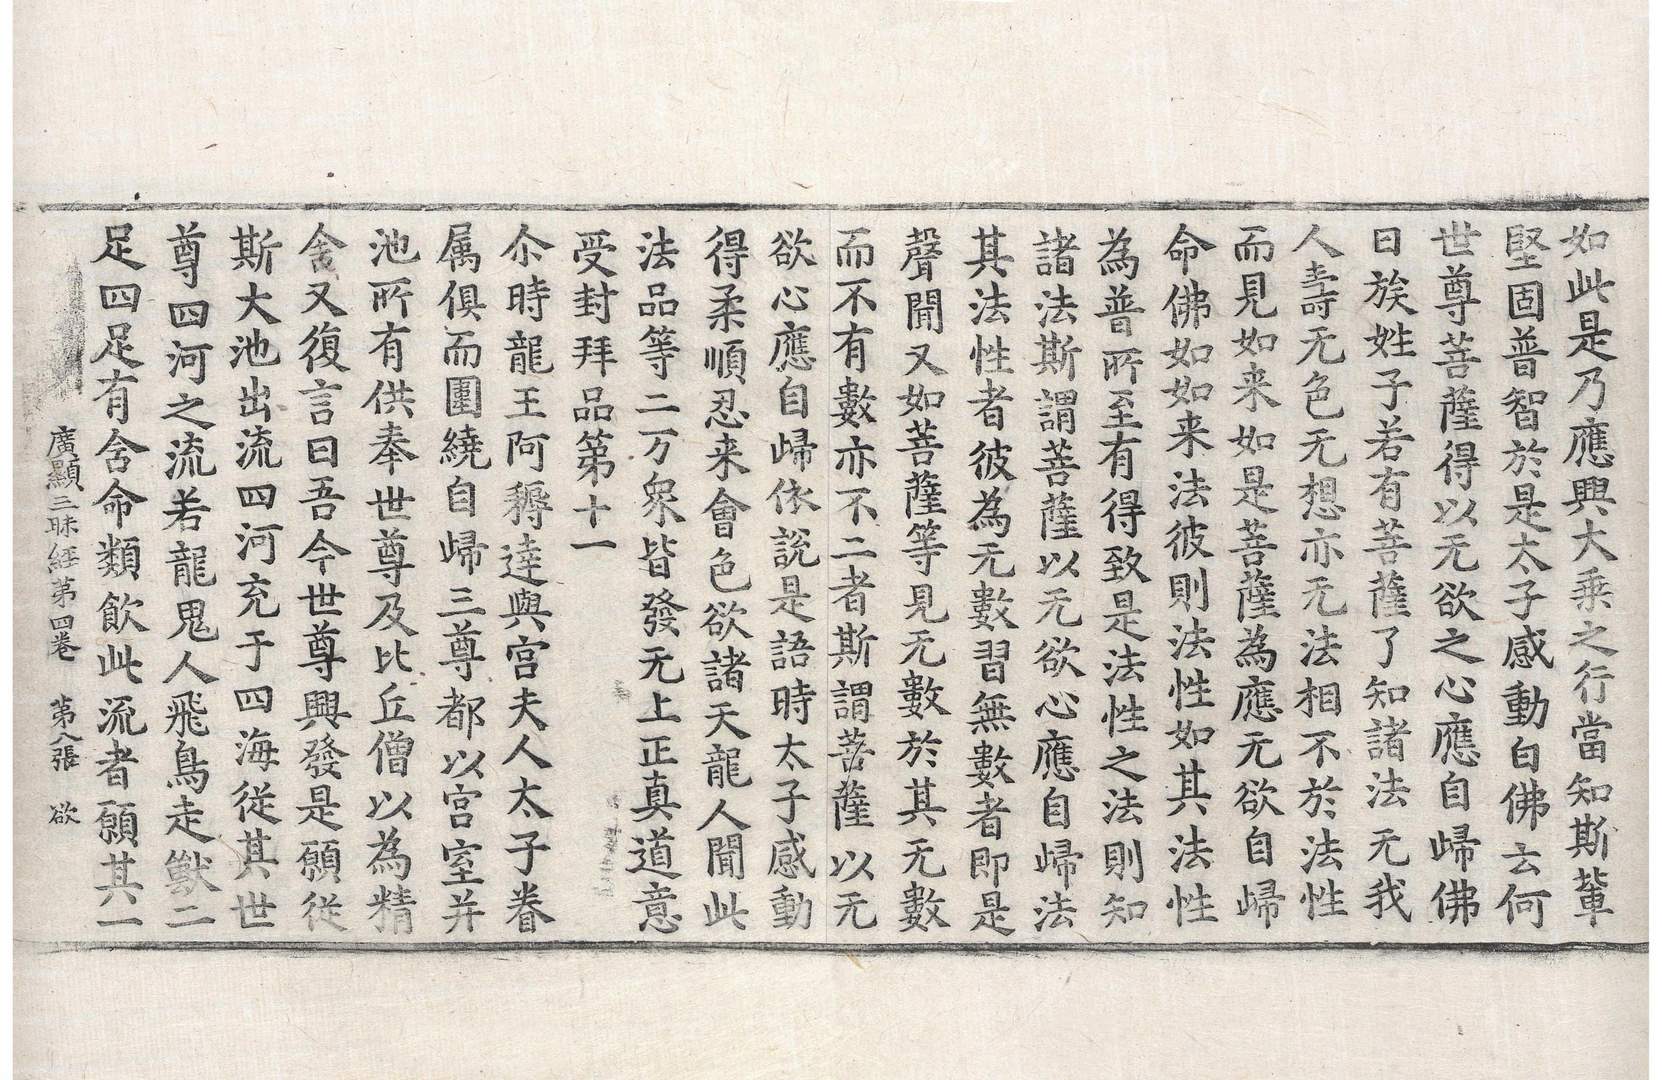 如此是乃應興大乘之行當知斯輩
堅固普智於是太子感動白佛云何
世尊菩薩得以无欲之心應自歸佛
曰族姓子若有菩薩了知諸法无我
人壽无色无想亦无法相不於法性
而見如来如是菩薩為應无欲自歸
命佛如如来法彼則法性如其法性
為普所至有得致是法性之法則知
諸法斯謂菩薩以无欲心應自歸法
其法性者彼為无數習無數者即是
聲聞又如菩薩等見无數於其无數
而不有數亦不二者斯謂菩薩以无
欲心應自歸依說是語時太子感動
得柔順忍来會色欲諸天龍人聞此
法品等二万衆皆發无上正真道意
受封拜品第十一
尒時龍王阿耨達與宮夫人太子眷
属俱而圍繞自歸三尊都以宮室并
池所有供奉世尊及比丘僧以為精
舍又復言曰吾今世尊興發是願從
斯大池出流四河充于四海從其世
尊四河之流若龍鬼人飛鳥走獸二
足四足有含命類飲此流者願其一
廣顯三昧経第四卷 第八張 欲